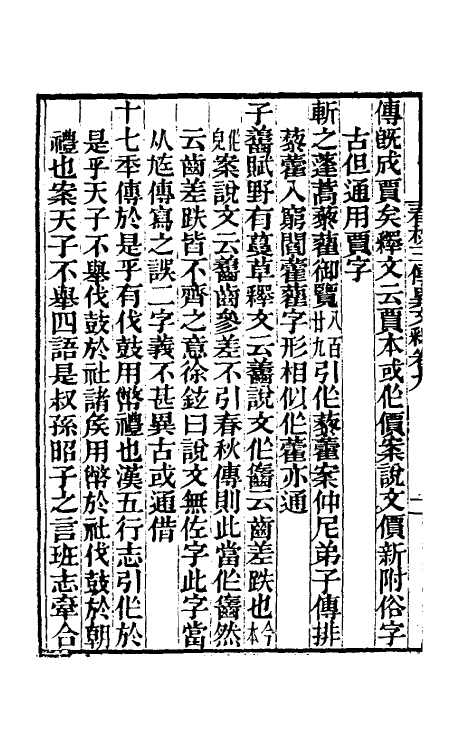 傳旣成賈矣釋文云賈本或作價案說文價新附俗字
古但通用賈字
斬之蓬蒿藜藋御覽八百廿九引作藜藿案仲尼弟子傳排
藜藿入窮閻藿藋字形相似作藿亦通
子齹賦野有蔓草釋文云齹說文作䰕云齒差跌也今本
作皃案說文云齹齒參差不引春秋傳則此當作䰕然
云齒差跌皆不齊之意徐鉉曰說文無佐字此字當
从㝾傳寫之誤二字義不甚異古或通借
十七年傳於是乎有伐鼓用幣禮也漢五行志引作於
是乎天子不舉伐鼓於社諸矦用幣於社伐鼓於朝
禮也案天子不舉四語是叔孫昭子之言班志牽合
春秋三傳異文釋卷九
二